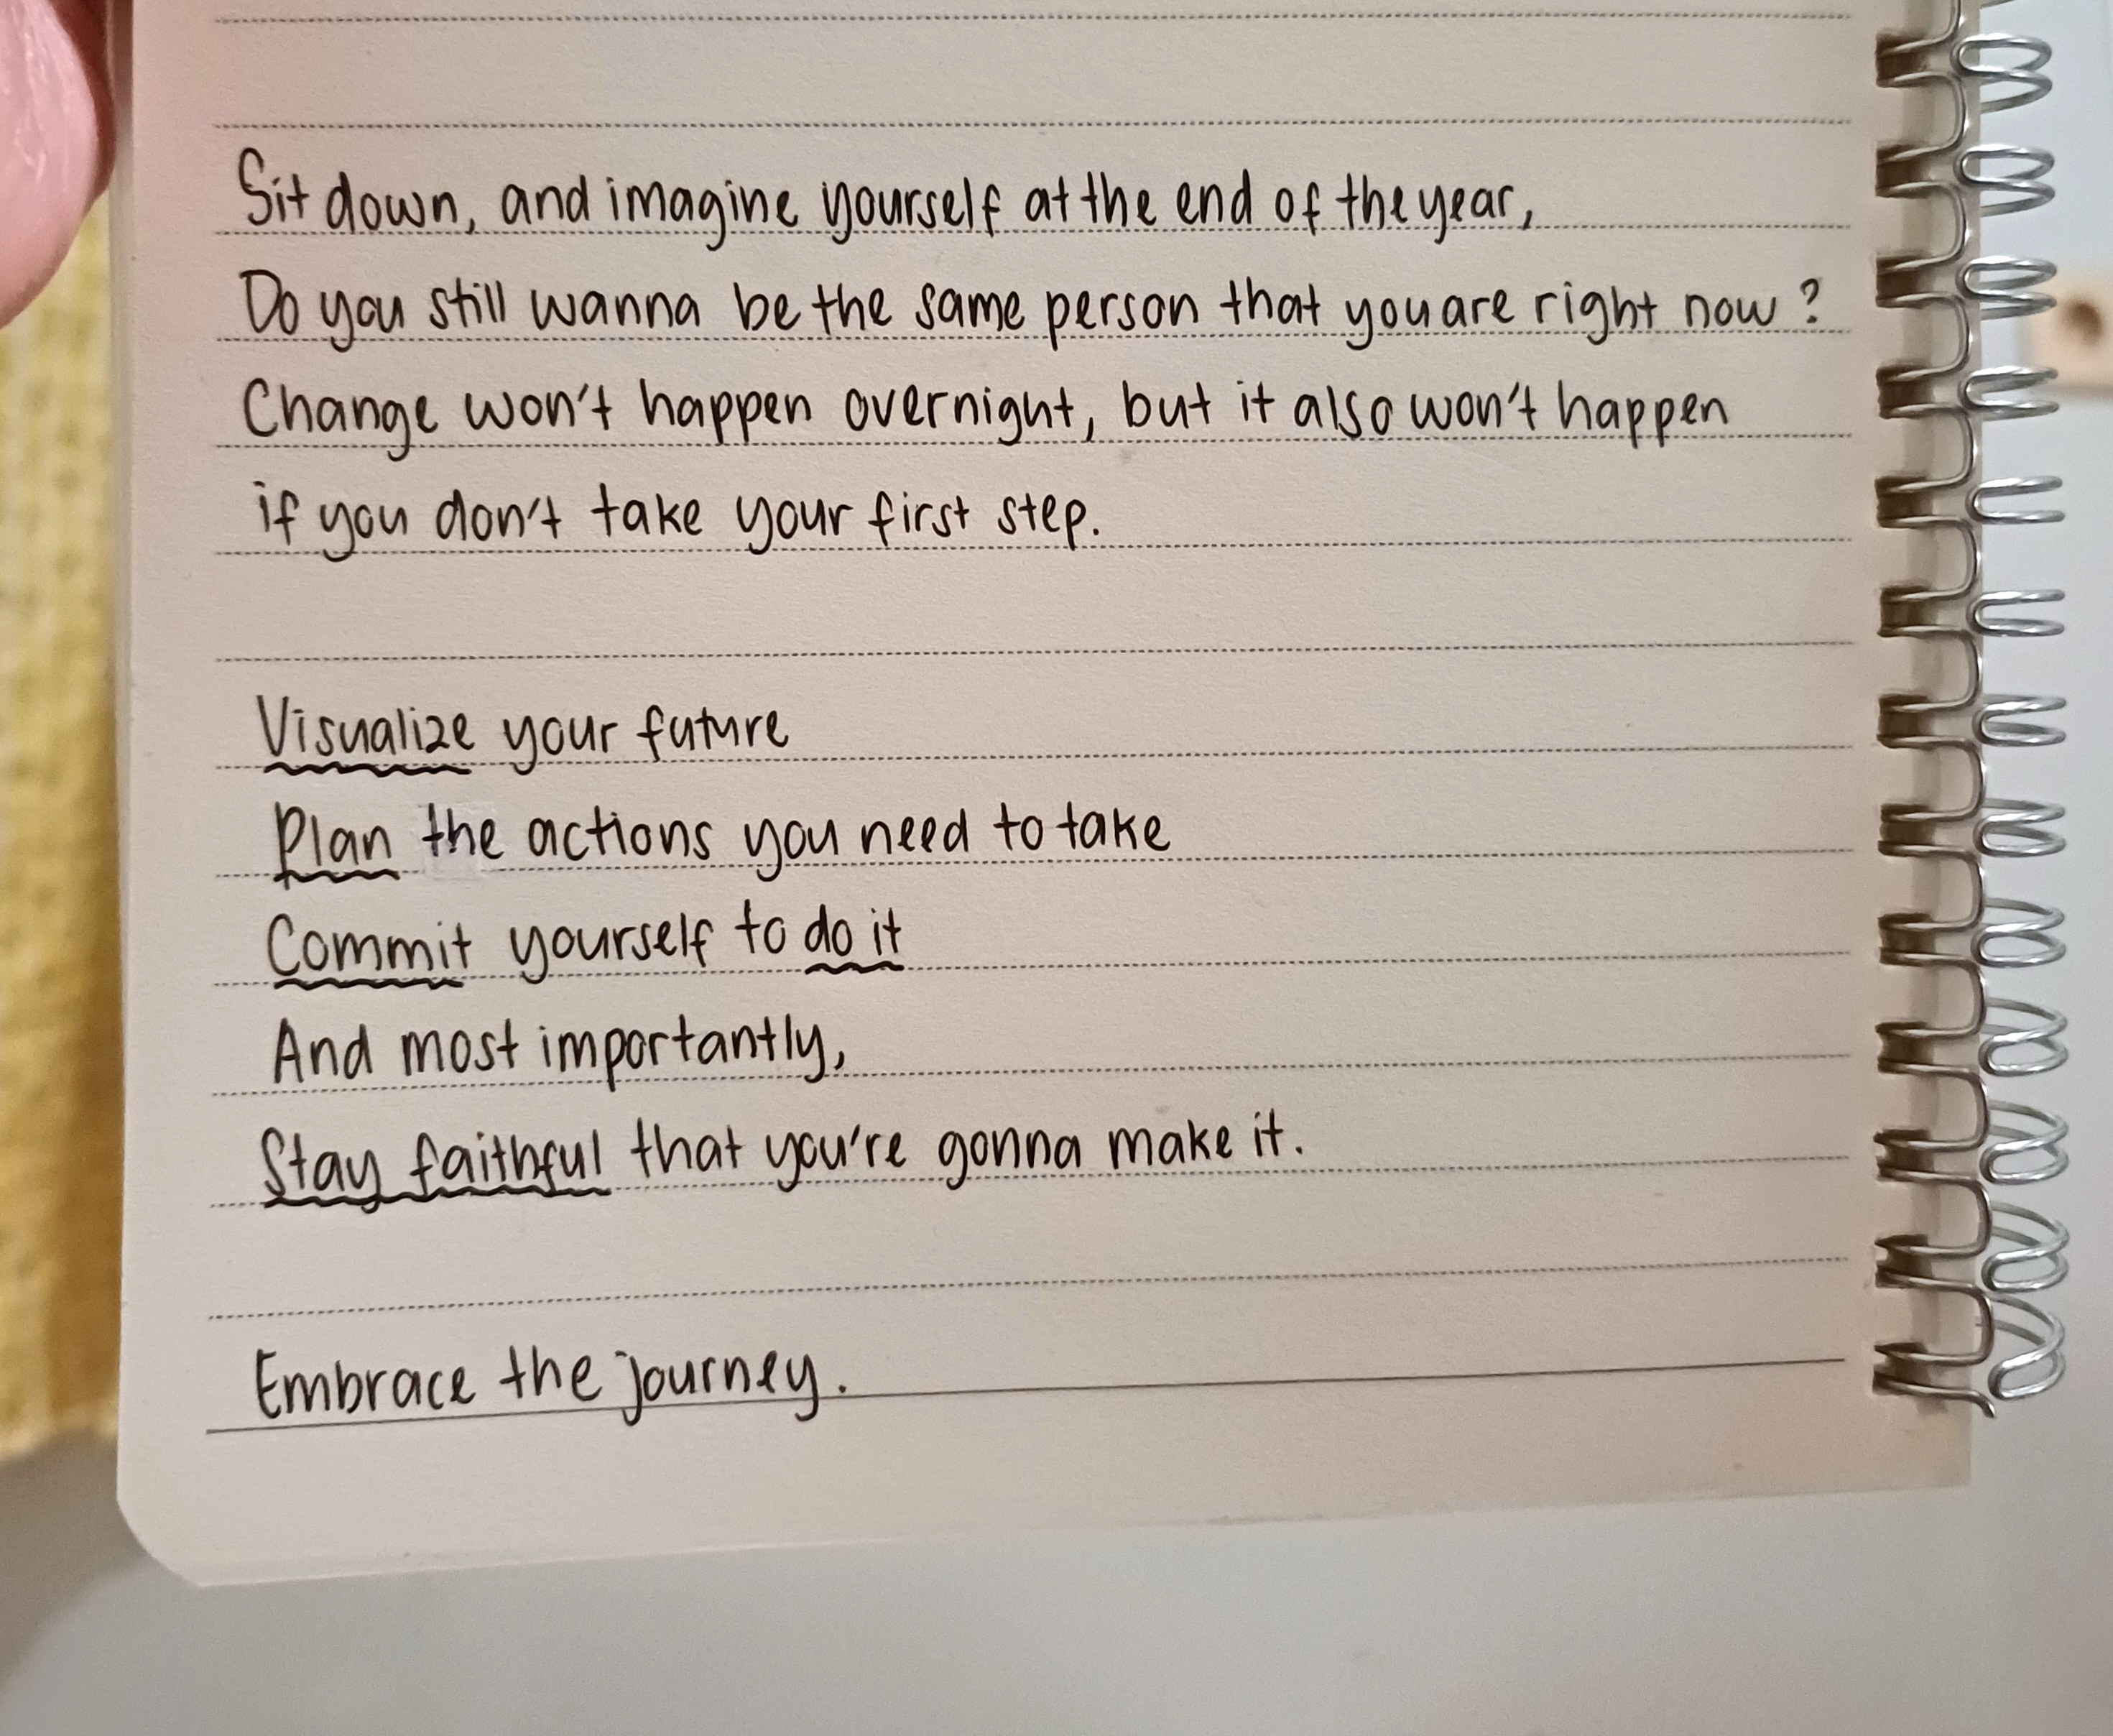 Sit down, and imagine yourself at the end of the year,
Do you still wanna be the same person that you are right now?
Change won't happen overnight, but it also won't happen
if you don't take your first step.
Visualize your future
Plan the actions you need to take
Commit yourself to do it
And most importantly,
Stay faithful that you're gonna make it.
Embrace the journey.